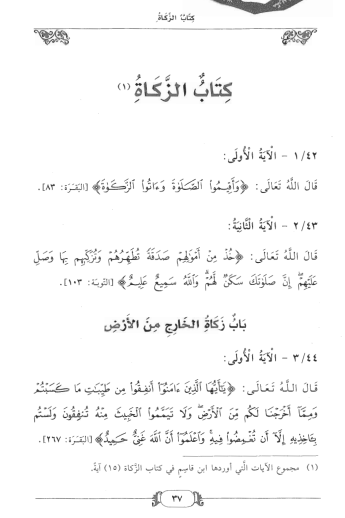 كِتَابُ الزَّكَاةُ
كِتَابُ الزَّكَاةُ (١)
١/٤٢ - الْآيَةُ الْأُولَى:
قَالَ اللَّهُ تَعَالَى: ﴿وَأَقِيمُوا۟ ٱلصَّلَوٰةَ وَءَاتُوا۟ ٱلزَّكَوٰةَ﴾ [البَقَرَة: ٨٣].
٢/٤٣ - الْآيَةُ الثَّانِيَةُ:
قَالَ اللَّهُ تَعَالَى: ﴿خُذْ مِنْ أَمْوَٰلِهِمْ صَدَقَةً تُطَهِّرُهُمْ وَتُزَكِّيهِم بِهَا وَصَلِّ
عَلَيْهِمْ ۖ إِنَّ صَلَوٰتَكَ سَكَنٌ لَّهُمْ ۗ وَٱللَّهُ سَمِيعٌ عَلِيمٌ﴾ [التَّوبَة: ١٠٣].
بَابُ زَكَاةُ الخَارِجِ مِنَ الأَرْضِ
٣/٤٤ - الْآيَةُ الْأُولَى:
قَالَ اللَّهُ تَعَالَى: ﴿يَٰٓأَيُّهَا ٱلَّذِينَ ءَامَنُوٓا۟ أَنفِقُوا۟ مِن طَيِّبَٰتِ مَا كَسَبْتُمْ
وَمِمَّآ أَخْرَجْنَا لَكُم مِّنَ ٱلْأَرْضِ ۖ وَلَا تَيَمَّمُوا۟ ٱلْخَبِيثَ مِنْهُ تُنفِقُونَ وَلَسْتُم
بِـَٔاخِذِيهِ إِلَّآ أَن تُغْمِضُوا۟ فِيهِ ۚ وَٱعْلَمُوٓا۟ أَنَّ ٱللَّهَ غَنِىٌّ حَمِيدٌ﴾ [البَقَرَة: ٢٦٧].
(١) مجموع الآيات الَّتي أوردها ابن قاسِم في كتاب الزَّكاة (١٥) آيةً.
٣٧